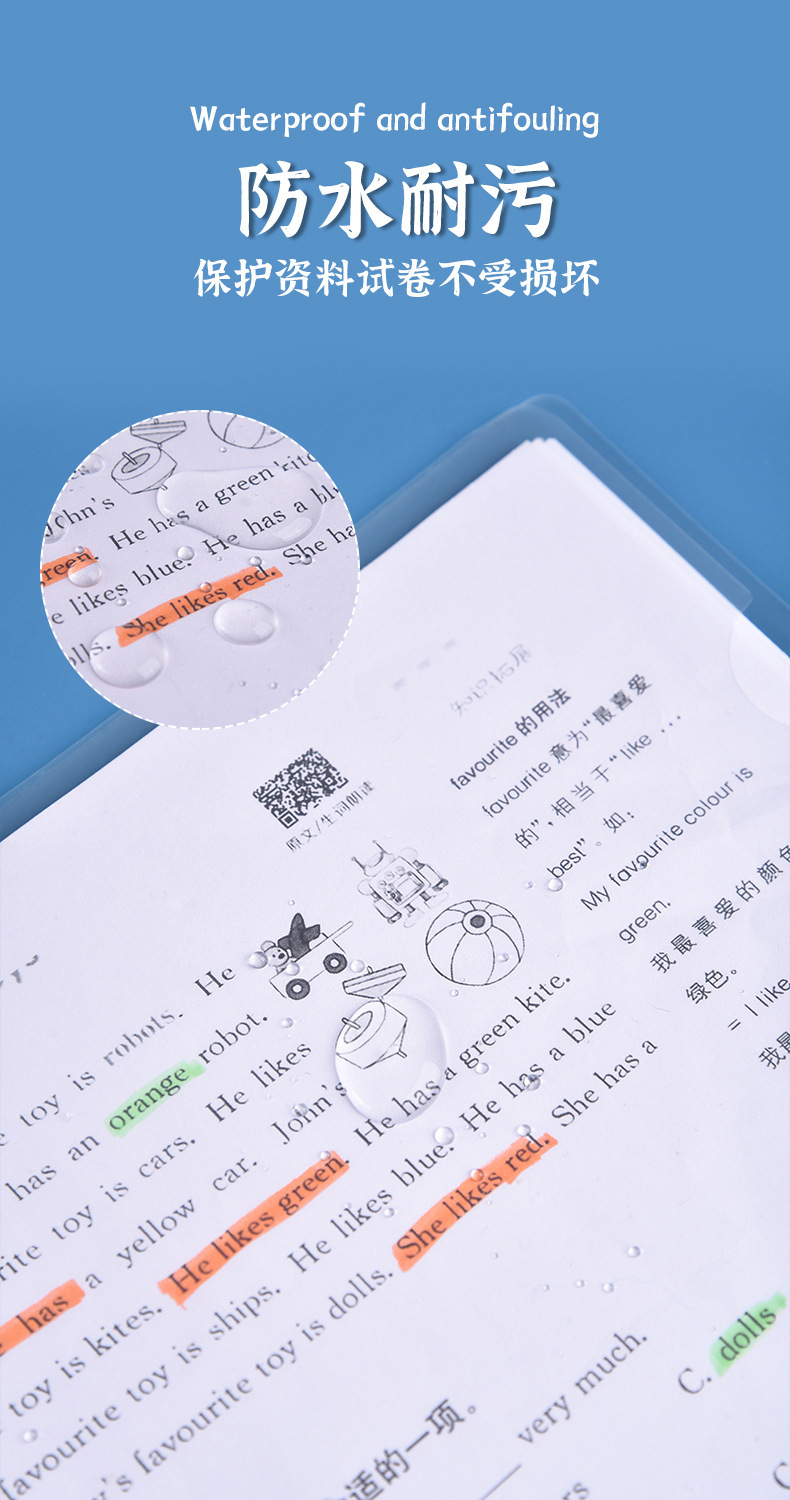 Waterproof and antifouling
防水耐污
保护资料试卷不受损坏
John's
reen. He has a green kite
e likes blue. He has a blu
She likes red. She ha
olls.
知识拓展
favourite 的用法
favourite 意为“最喜爱
的”,相当于“like ...
best”。如:
My favourite colour is
green.
我最喜爱的颜色
绿色。
= I like
我最
原文/生词朗读
toy is robots. He
has an orange robot.
toy is cars. He likes
rite toy is a yellow car. John's
has a toy is kites. He likes green. He has a green kite.
favourite toy is ships. He likes blue. He has a blue
's favourite toy is dolls. She likes red. She has a
适的一项。
very much.
C. dolls